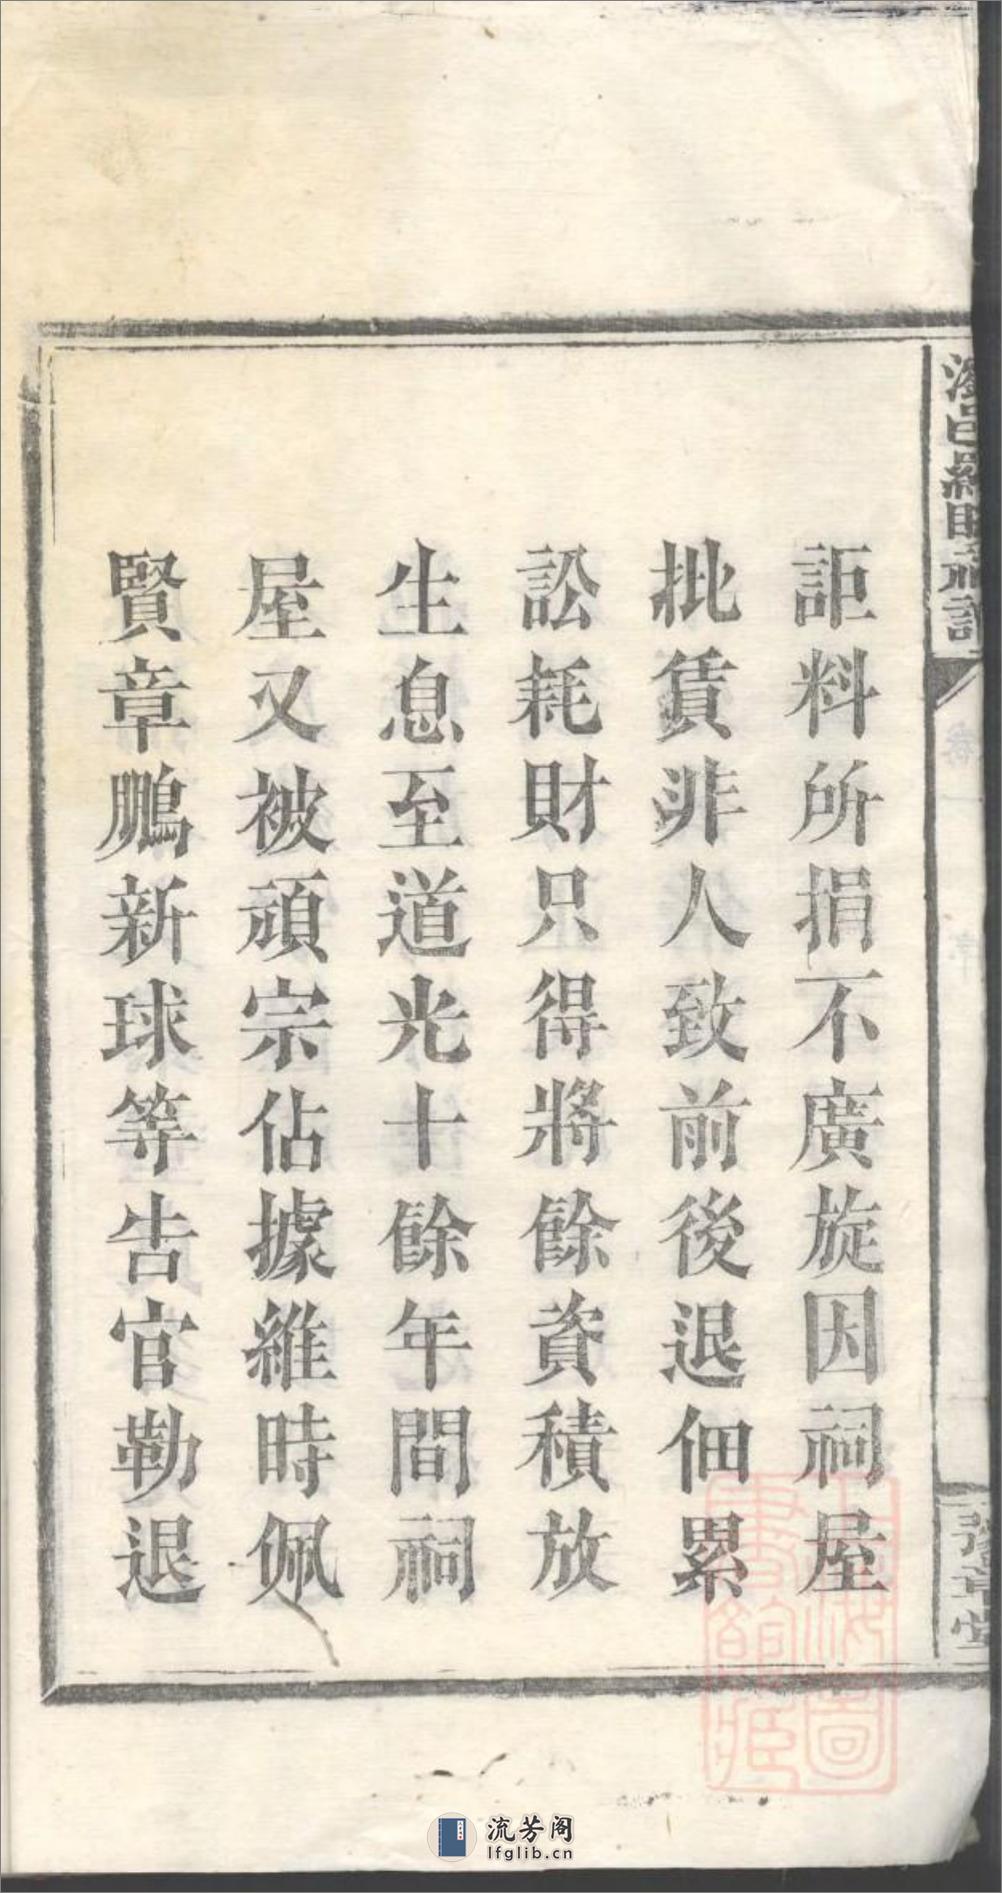 詎料所捐不廣旋因祠屋
批賃非人致前後退佃累
訟耗財只得將餘資積放
生息至道光十餘年間祠
屋又被頑宗佔據維時佩
賢章鵬新球等告官勒退
豫章堂
上海圖
書館藏
流芳阁
lfglib.cn